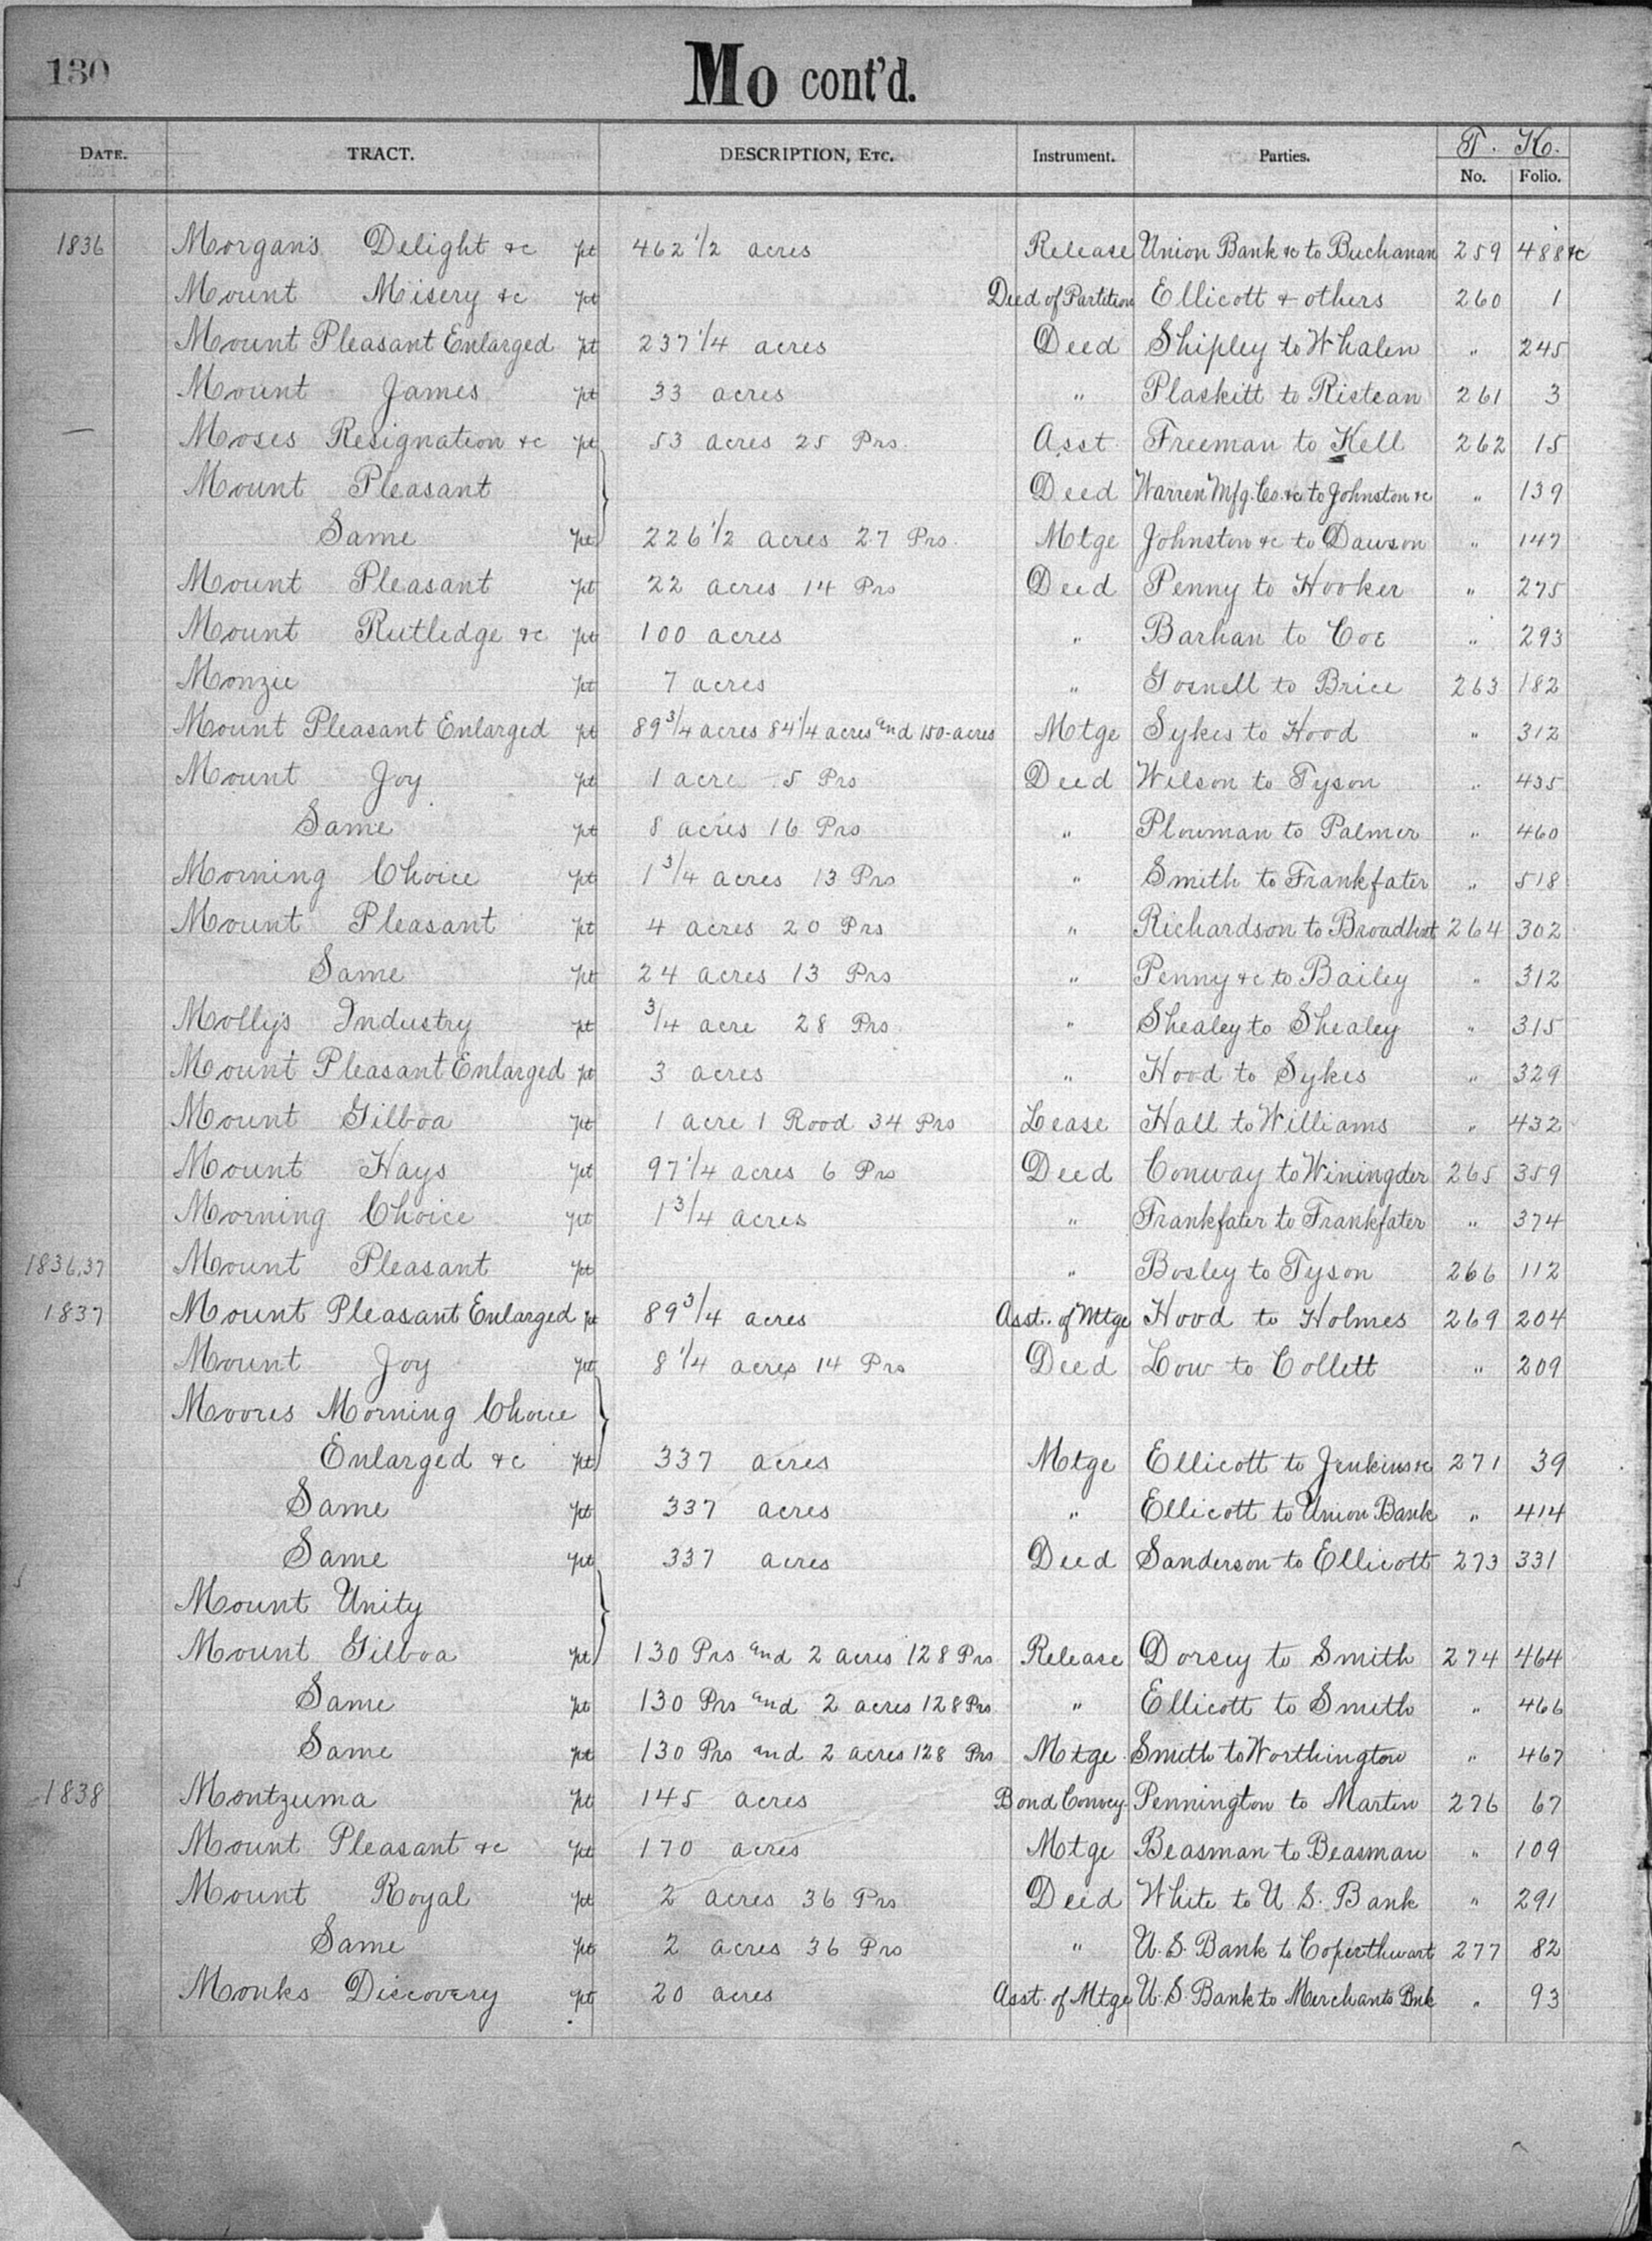 130
Mo cont'd.
DATE. TRACT. DESCRIPTION, ETC. Instrument. Parties. T. K. No. Folio.
1836 Morgan's Delight &c pt 462 1/2 acres Release Union Bank &c to Buchanan 259 488 &c
Mount Misery &c pt Deed of Partition Ellicott & others 260 1
Mount Pleasant Enlarged pt 237 1/4 acres Deed Shipley to Whalen " 245
Mount James pt 33 acres " Plaskitt to Ristean 261 3
— Moses Resignation &c pt 53 acres 25 Prs. Asst. Freeman to Kell 262 15
Mount Pleasant Deed Warren Mfg. Co. &c to Johnston &c " 139
Same pt 226 1/2 acres 27 Prs. Mtge Johnston &c to Dawson " 147
Mount Pleasant pt 22 acres 14 Prs Deed Penny to Hooker " 275
Mount Rutledge &c pt 100 acres " Barhan to Coe " 293
Monzie pt 7 acres " Gosnell to Brice 263 182
Mount Pleasant Enlarged pt 89 3/4 acres 84 1/4 acres and 150-acres Mtge Sykes to Hood " 312
Mount Joy pt 1 acre 5 Prs Deed Wilson to Tyson " 435
Same pt 8 acres 16 Prs " Plowman to Palmer " 460
Morning Choice pt 1 3/4 acres 13 Prs " Smith to Frankfater " 518
Mount Pleasant pt 4 acres 20 Prs " Richardson to 264 302
Same pt 24 acres 13 Prs " Penny &c to Bailey " 312
Molly's Industry pt 3/4 acre 28 Prs. " Shealey to Shealey " 315
Mount Pleasant Enlarged pt 3 acres " Hood to Sykes " 329
Mount Gilboa pt 1 acre 1 Rood 34 Prs Lease Hall to Williams " 432
Mount Hays pt 97 1/4 acres 6 Prs Deed Conway to Winingder 265 359
Morning Choice pt 1 3/4 acres " Frankfater to Frankfater " 374
1836,37 Mount Pleasant pt " Bosley to Tyson 266 112
1837 Mount Pleasant Enlarged pt 89 3/4 acres Asst. of Mtge Hood to Holmes 269 204
Mount Joy pt 8 1/4 acres 14 Prs Deed Low to Collett " 209
Moores Morning Choice
Enlarged &c pt 337 acres Mtge Ellicott to Jenkins &c 271 39
Same pt 337 acres " Ellicott to Union Bank " 414
Same pt 337 acres Deed Sanderson to Ellicott 273 331
Mount Unity
Mount Gilboa pt 130 Prs and 2 acres 128 Prs Release Dorsey to Smith 274 464
Same pt 130 Prs and 2 acres 128 Prs " Ellicott to Smith " 466
Same pt 130 Prs and 2 acres 128 Prs Mtge Smith to Worthington " 467
1838 Montzuma pt 145 acres Bond Convey. Pennington to Martin 276 67
Mount Pleasant &c pt 170 acres Mtge Beasman to Beasman " 109
Mount Royal pt 2 acres 36 Prs Deed White to U. S. Bank " 291
Same pt 2 acres 36 Prs " U. S. Bank to 277 82
Monks Discovery pt 20 acres Asst. of Mtge U. S. Bank to Merchants Bnk " 93